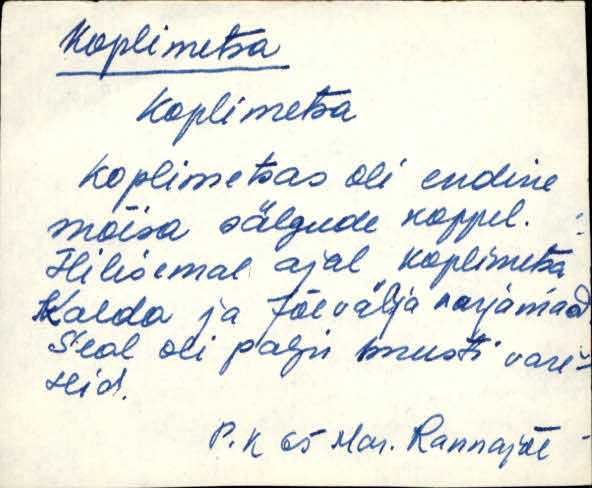 Koplimetsa
Koplimetsa
Koplimetsas oli endine
mõisa sälgude koppel.
Hilisemal ajal Koplimetsa
Kalda ja Jõevälja karjamaad.
Seal oli palju musti vare-
seid.
P. K 65 Mar. Rannajõe